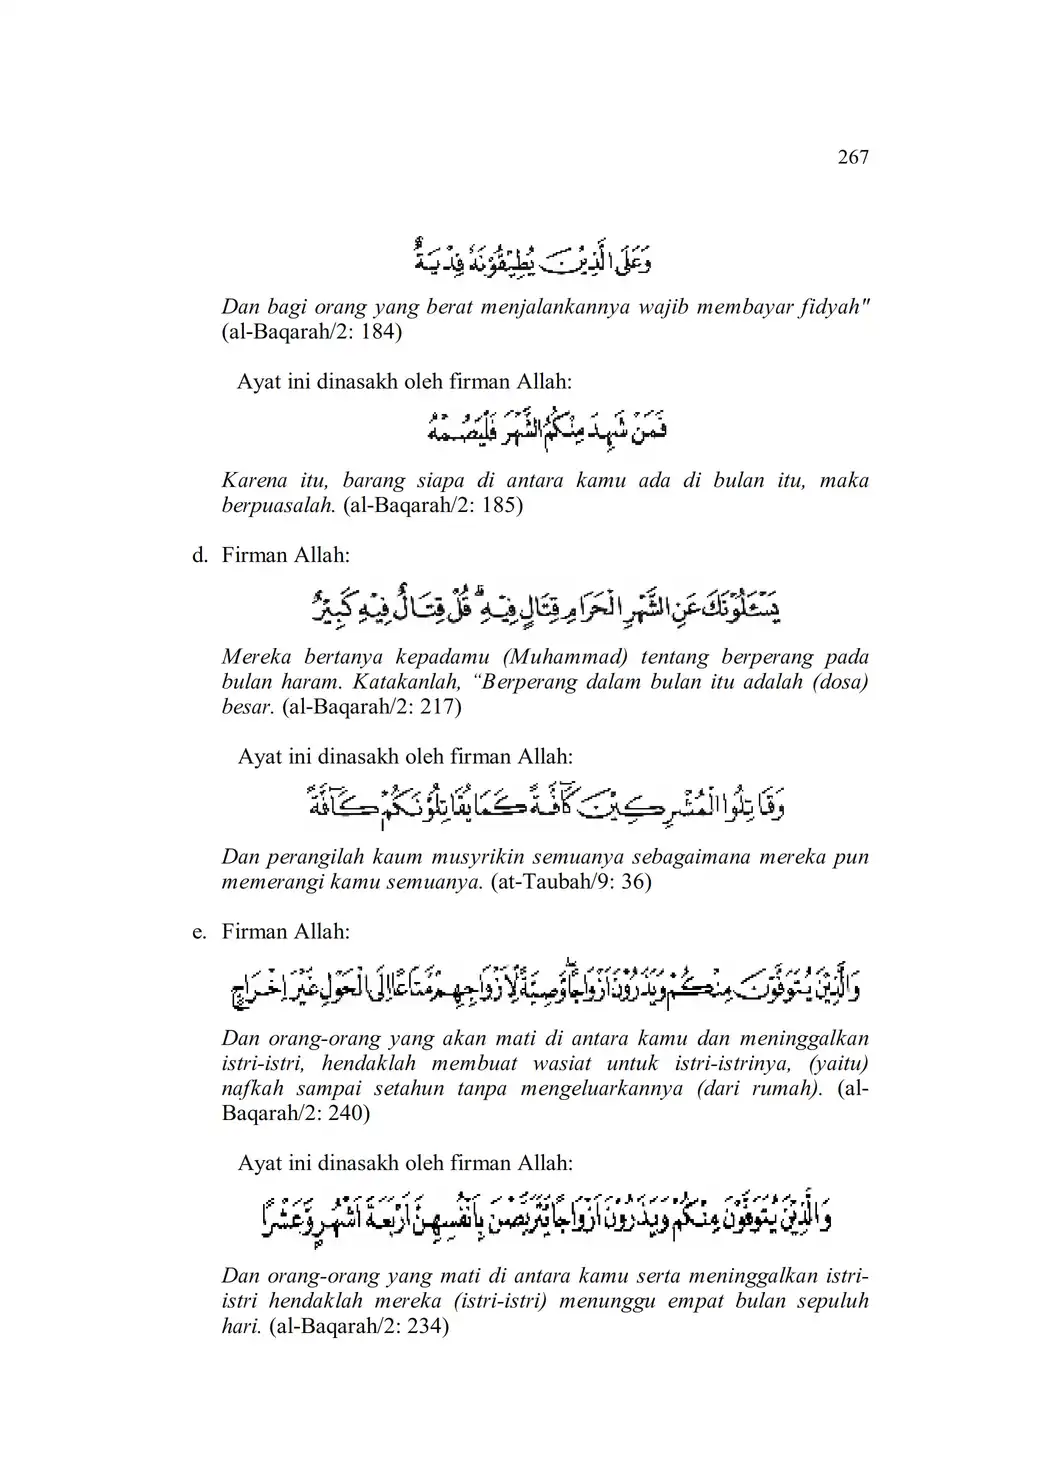 267
وَعَلَى الَّذِيْنَ يُطِيْقُوْنَهٗ فِدْيَةٌ
Dan bagi orang yang berat menjalankannya wajib membayar fidyah"
(al-Baqarah/2: 184)
Ayat ini dinasakh oleh firman Allah:
فَمَنْ شَهِدَ مِنْكُمُ الشَّهْرَ فَلْيَصُمْهُ
Karena itu, barang siapa di antara kamu ada di bulan itu, maka
berpuasalah. (al-Baqarah/2: 185)
d. Firman Allah:
يَسْـَٔلُوْنَكَ عَنِ الشَّهْرِ الْحَرَامِ قِتَالٍ فِيْهِۗ قُلْ قِتَالٌ فِيْهِ كَبِيْرٌ
Mereka bertanya kepadamu (Muhammad) tentang berperang pada
bulan haram. Katakanlah, “Berperang dalam bulan itu adalah (dosa)
besar. (al-Baqarah/2: 217)
Ayat ini dinasakh oleh firman Allah:
وَقَاتِلُوا الْمُشْرِكِيْنَ كَاۤفَّةً كَمَا يُقَاتِلُوْنَكُمْ كَاۤفَّةً
Dan perangilah kaum musyrikin semuanya sebagaimana mereka pun
memerangi kamu semuanya. (at-Taubah/9: 36)
e. Firman Allah:
وَالَّذِيْنَ يُتَوَفَّوْنَ مِنْكُمْ وَيَذَرُوْنَ اَزْوَاجًاۖ وَّصِيَّةً لِّاَزْوَاجِهِمْ مَّتَاعًا اِلَى الْحَوْلِ غَيْرَ اِخْرَاجٍ
Dan orang-orang yang akan mati di antara kamu dan meninggalkan
istri-istri, hendaklah membuat wasiat untuk istri-istrinya, (yaitu)
nafkah sampai setahun tanpa mengeluarkannya (dari rumah). (al-
Baqarah/2: 240)
Ayat ini dinasakh oleh firman Allah:
وَالَّذِيْنَ يُتَوَفَّوْنَ مِنْكُمْ وَيَذَرُوْنَ اَزْوَاجًا يَّتَرَبَّصْنَ بِاَنْفُسِهِنَّ اَرْبَعَةَ اَشْهُرٍ وَّعَشْرًا
Dan orang-orang yang mati di antara kamu serta meninggalkan istri-
istri hendaklah mereka (istri-istri) menunggu empat bulan sepuluh
hari. (al-Baqarah/2: 234)